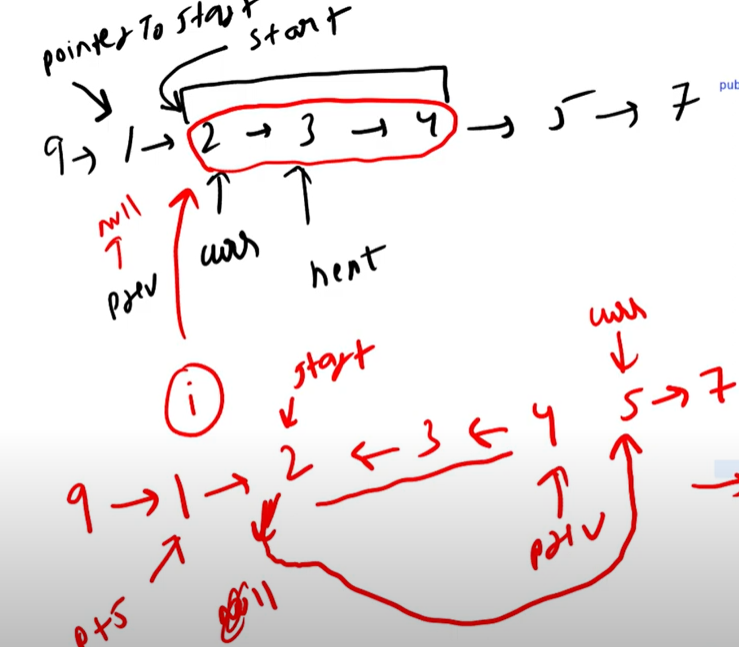 pointer To start
start
9 → 1 → 2 → 3 → 4 → 5 → 7
pub
null
prev
curr
next
i
start
curr
9 → 1 → 2 ← 3 ← 4 5 → 7
prev
pts